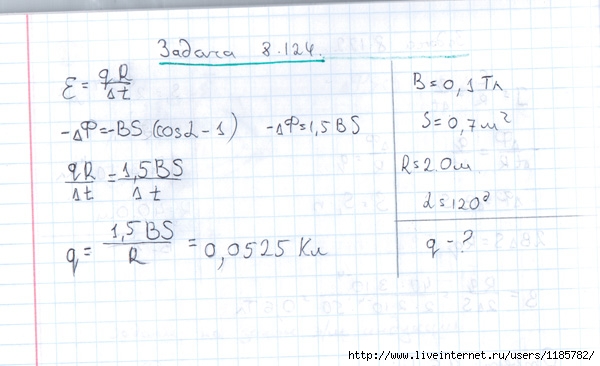 Задача 8.124.
ε = qR/Δt
-ΔФ=-BS(cosα-1) -ΔФ=1,5BS
qR/Δt = 1,5BS/Δt
q = 1,5BS/R = 0,0525 Кл
B=0,1Тл
S=0,7м²
R=2Ом
α=120°
q-?
http://www.liveinternet.ru/users/1185782/